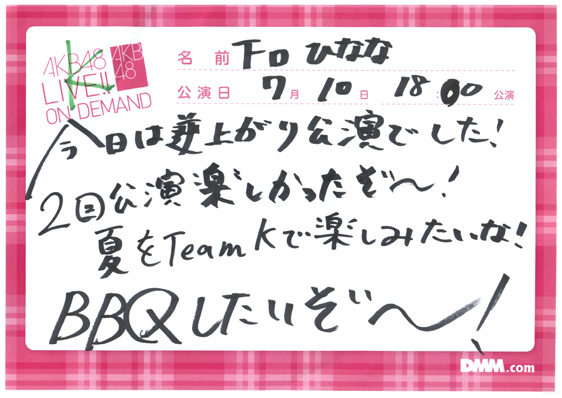 AKB48
LIVE!!
ON DEMAND
AKB
48
名前 下口ひなな
公演日 7月10日 18:00公演
今日は夢上がり公演でした!
2回公演楽しかったぞ〜!
夏をTeam Kで楽しみたいな!
BBQしたいぞ〜!
DMM.com